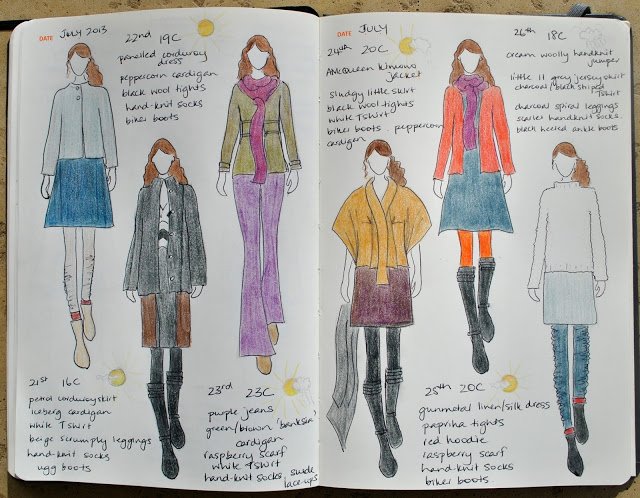 DATE JULY 2013
22nd 19C
panelled corduroy
dress
peppercorn cardigan
black wool tights
hand-knit socks
biker boots
21st 16C
petrol corduroy skirt
iceberg cardigan
white Tshirt
beige scrumply leggings
hand-knit socks
ugg boots
23rd 23C
purple jeans
green/brown 'banksia'
cardigan
raspberry scarf
white Tshirt
hand-knit socks, suede
lace-ups
DATE JULY
24th 20C
AMcQueen kimono
jacket
sludgy little skirt
black wool tights
white Tshirt
biker boots. peppercorn
cardigan
26th 18C
cream woolly handknit
jumper
little 11 grey jersey skirt
charcoal/black striped
Tshirt
charcoal spiral leggings
scarlet handknit socks.
black heeled ankle boots
25th 20C
gunmetal linen/silk dress
paprika tights
red hoodie
raspberry scarf
hand-knit socks
biker boots.